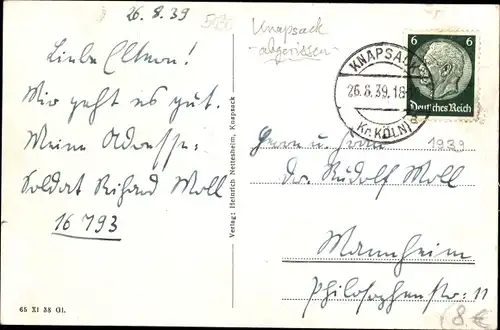 26.8.39
5030
Liebe Eltern!
Wir geht es gut.
Meine Adresse:
Soldat Rihard Moll
16 793
65 XI 38 Gl.
Verlag: Heinrich Nettesheim, Knapsack
Knapsack
-abgerissen-
KNAPSACK
26.8.39.18
(Kr. KÖLN)
a
6 6
Deutsches Reich
1939
Herrn u. Frau
Dr. Rudolf Moll
Mannheim
Philosophenstr. 11
(8 €